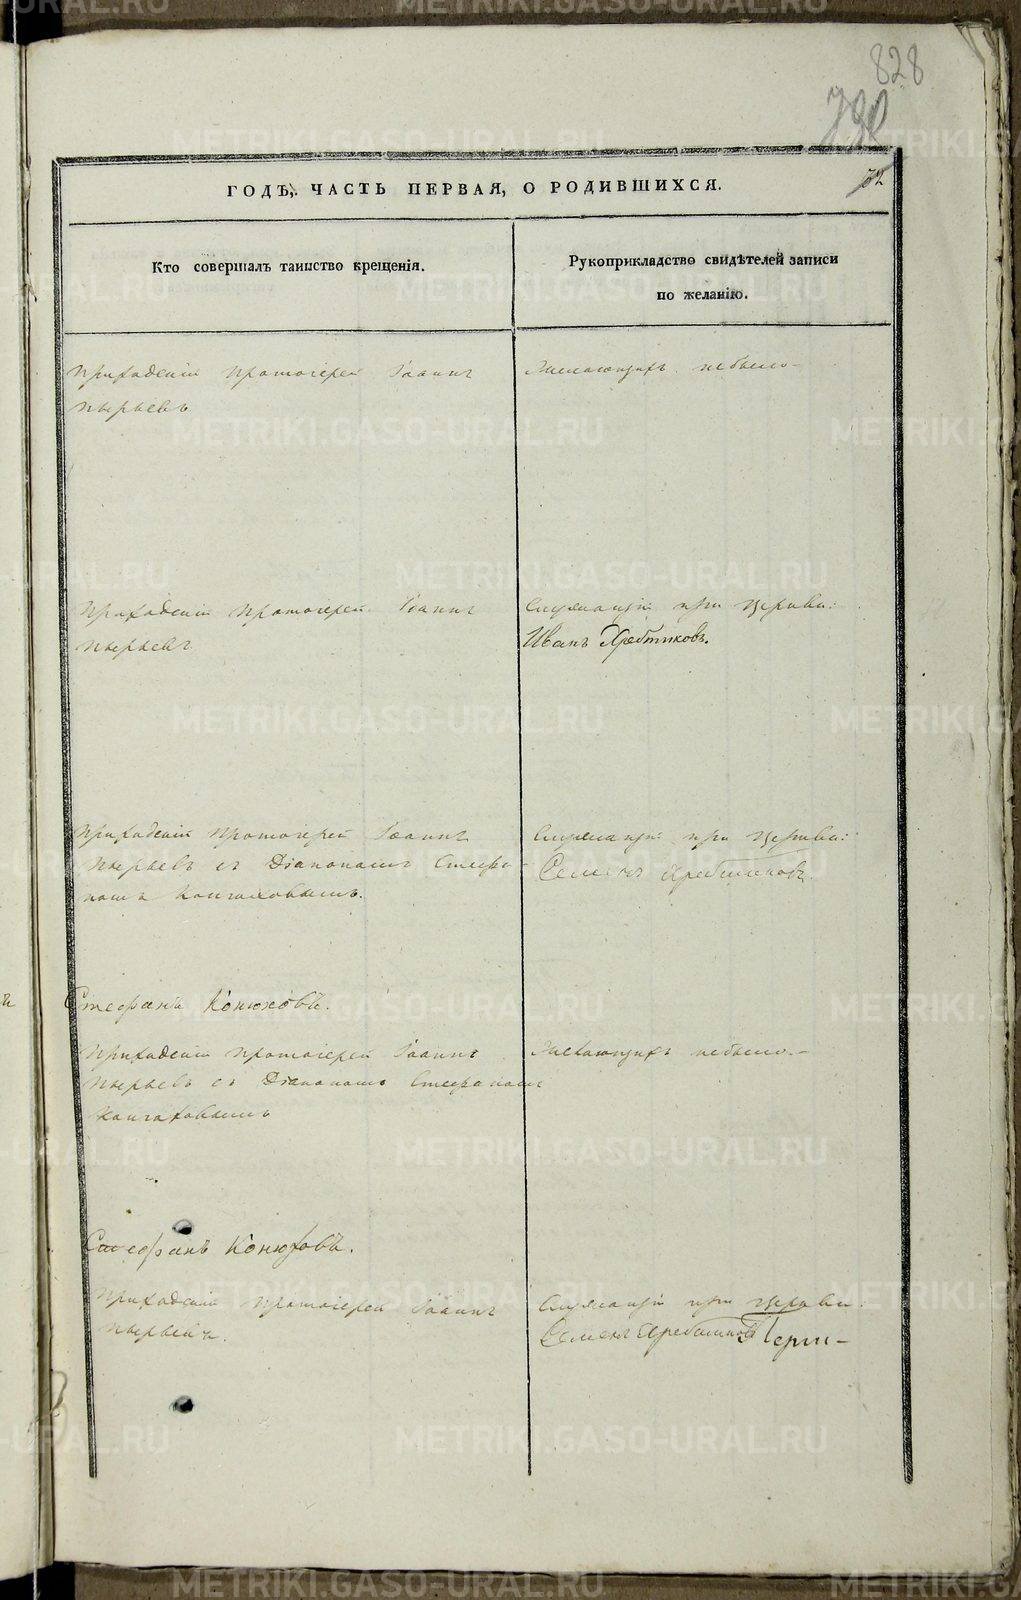 828
790
72
ГОДЪ, ЧАСТЬ ПЕРВАЯ, О РОДИВШИХСЯ.
Кто совершалъ таинство крещенія.
Рукоприкладство свидѣтелей записи
по желанію.
Приходскій Протоіерей Іоаннъ
Пырьевъ
Желающихъ небыло
Приходскій Протоіерей Іоаннъ
Пырьевъ
Служащій при церкви:
Иванъ Хребтиковъ.
Приходскій Протоіерей Іоаннъ
Пырьевъ съ Діакономъ Стефа-
номъ Конюховымъ.
Служащій при церкви:
Семенъ Хребтиковъ
Стефанъ Конюховъ.
Приходскій Протоіерей Іоаннъ
Пырьевъ съ Діакономъ Стефаномъ
Конюховымъ
Желающихъ небыло.
Стефанъ Конюховъ.
Приходскій Протоіерей Іоаннъ
Пырьевъ.
Служащій при церкви:
Семенъ Хребтиковъ
METRIKI.GASO-URAL.RU